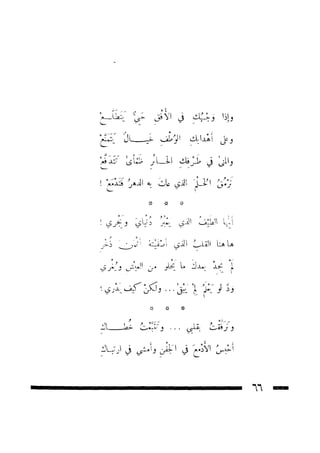 وإذا وجهك في الأفق حيي يتطلع
وعلى أهدابك الوطف خيال يتمتع
والمنى في طرفك الحائر ظمأى تتدفع
ترمق الحلم الذي عاث به الدهر فتدمع !
* * *
أيها الطيف الذي يعبر دنياي ويجري !
ها هنا القلب الذي أسقيته أثمن ذخر
لم يجد بعدك ما يحلو من العيش ويغري
ود لو يعلم لم يبقى ... ولكن كيف يدري ؟
* * *
وترفقت بقلبي ... وتتبعت خطاك
أحبس الأدمع في الجفن وأمشي في ارتباك
٦٦